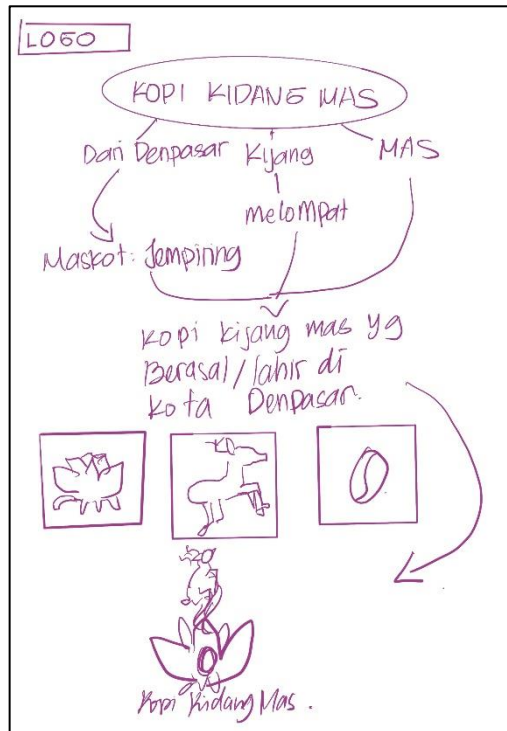 LOGO
KOPI KIDANG MAS
Dari Denpasar Kijang MAS
melompat
Maskot: Jempiring
kopi kijang mas yg
Berasal/lahir di
kota Denpasar.
Kopi Kidang Mas.